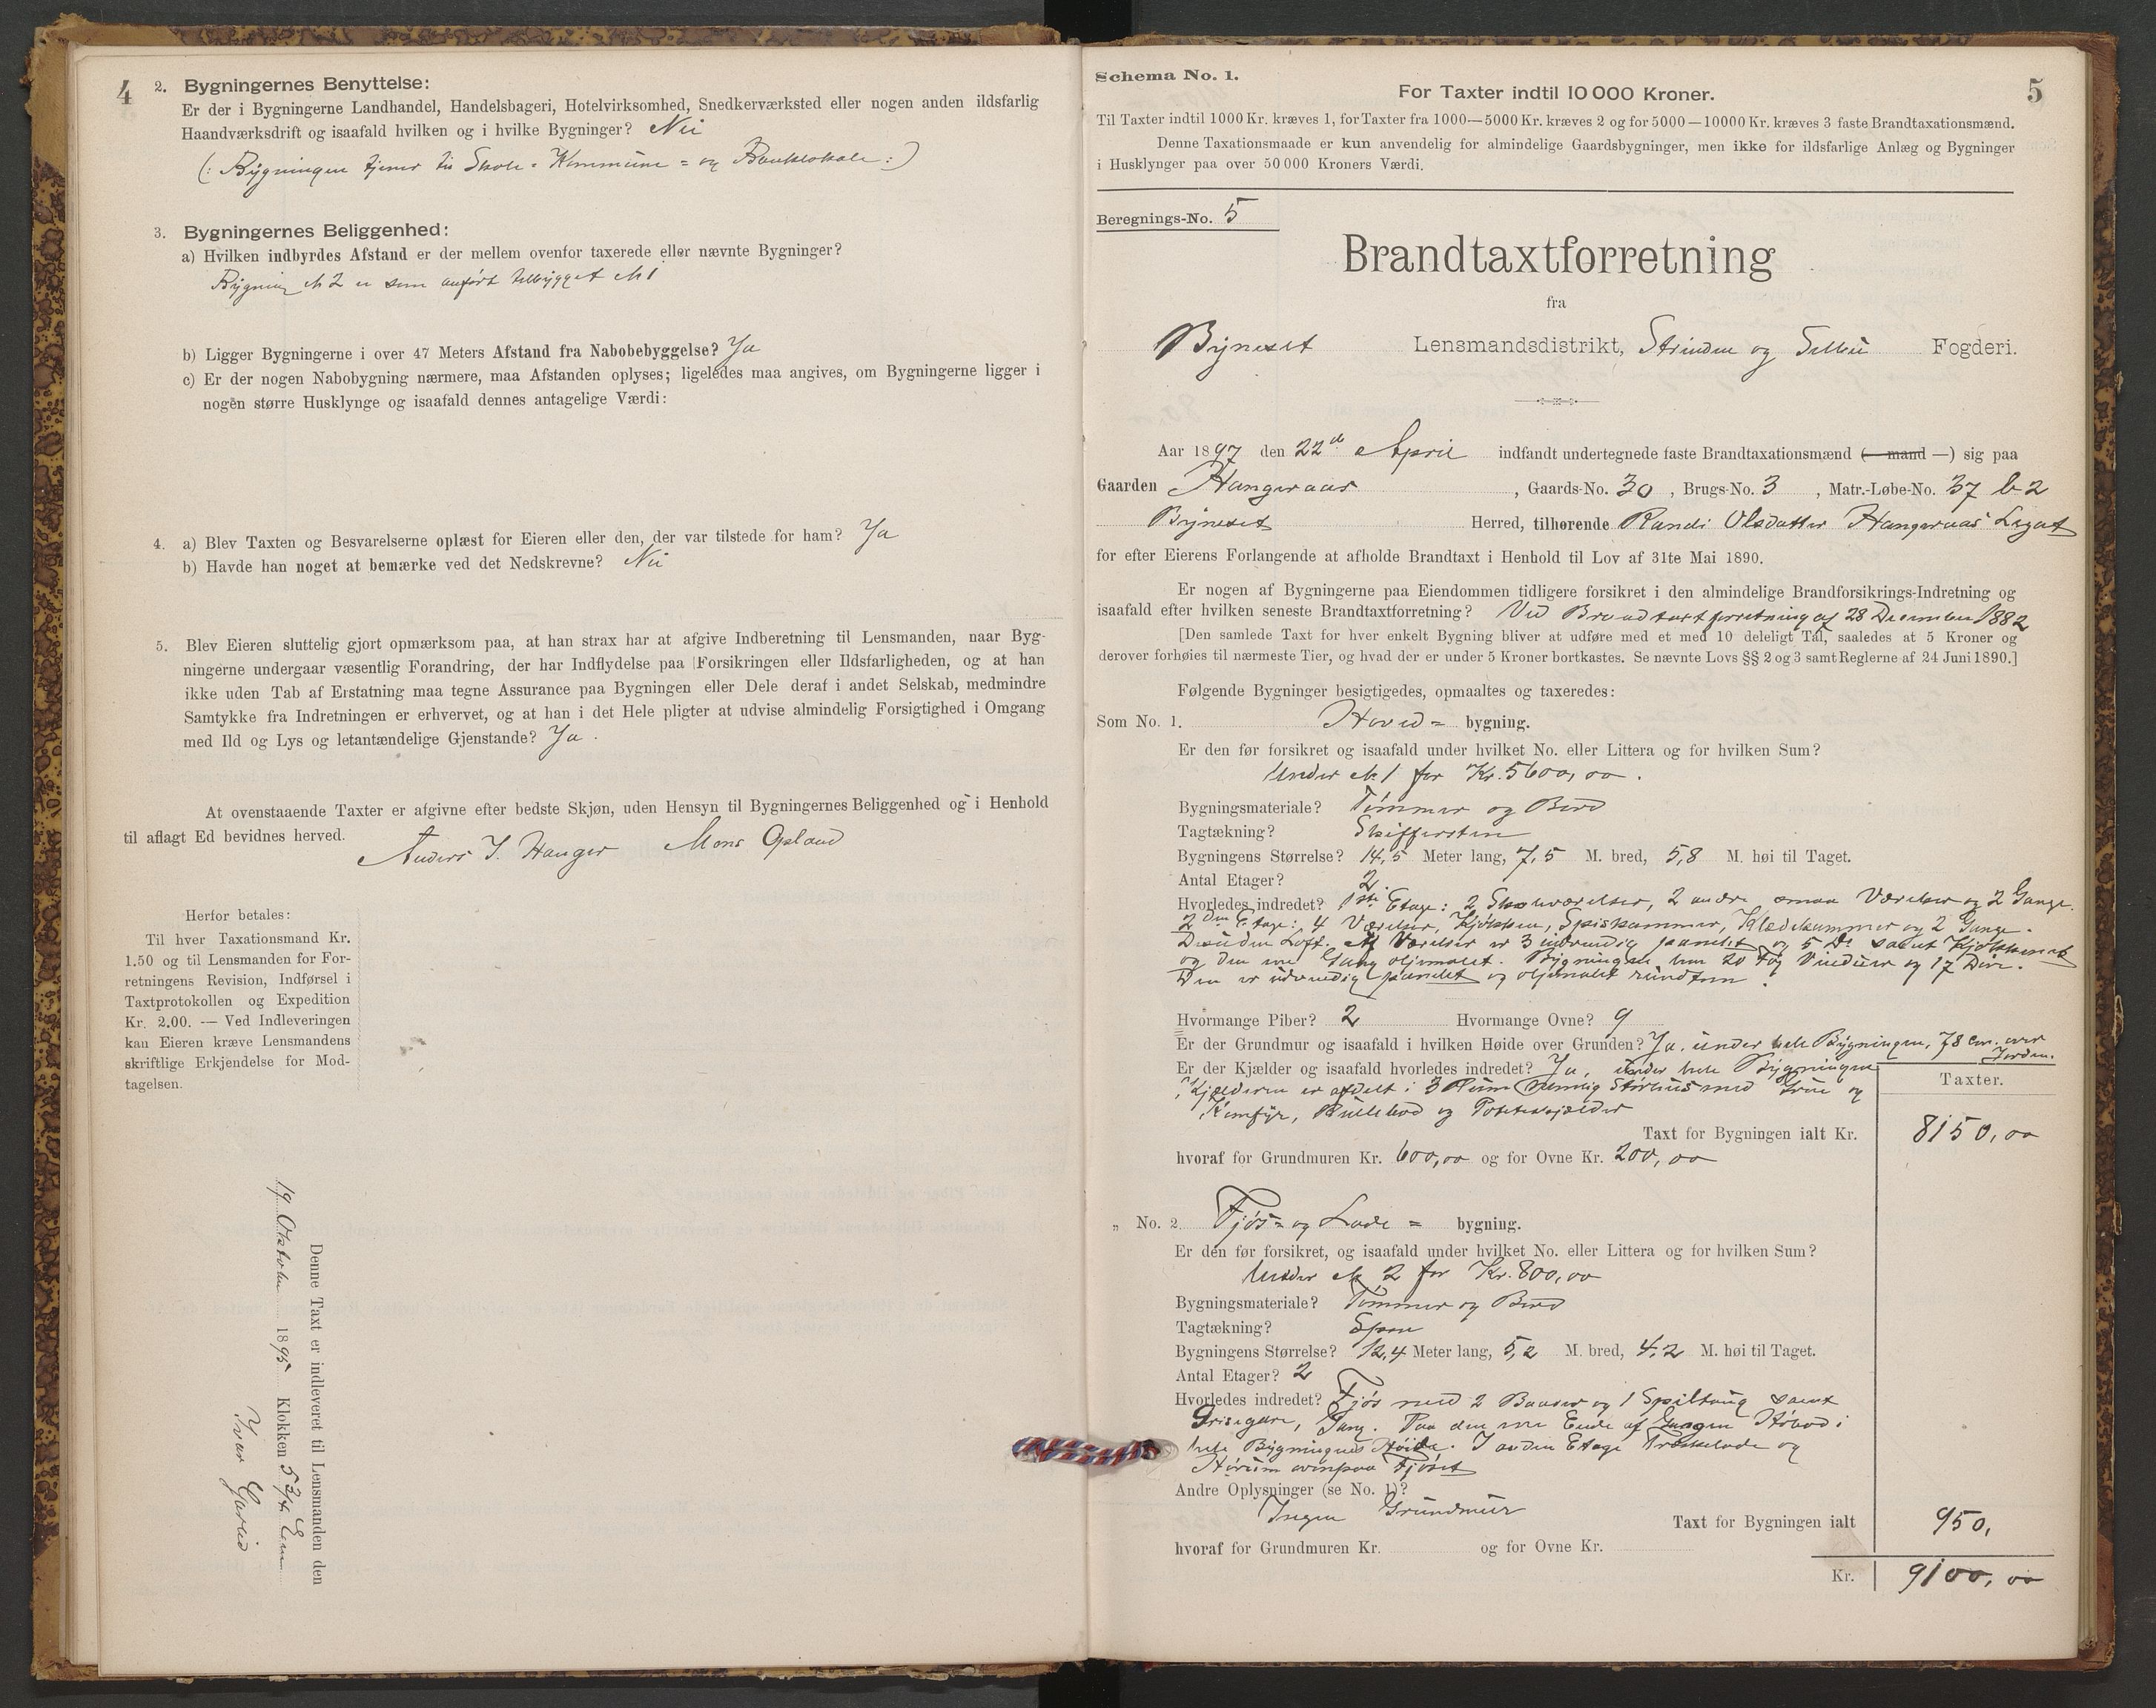 4
2. Bygningernes Benyttelse:
Er der i Bygningerne Landhandel, Handelsbageri, Hotelvirksomhed, Snedkerværksted eller nogen anden ildsfarlig
Haandværksdrift og isaafald hvilken og i hvilke Bygninger? Nei
(: Bygningen tjener til Skole- Kommune- og Banklokale :)
3. Bygningernes Beliggenhed:
a) Hvilken indbyrdes Afstand er der mellem ovenfor taxerede eller nævnte Bygninger?
Bygning № 2 er som anført tilbygget № 1
b) Ligger Bygningerne i over 47 Meters Afstand fra Nabobebyggelse? Ja
c) Er der nogen Nabobygning nærmere, maa Afstanden oplyses; ligeledes maa angives, om Bygningerne ligger i
nogen større Husklynge og isaafald dennes antagelige Værdi:
4. a) Blev Taxten og Besvarelserne oplæst for Eieren eller den, der var tilstede for ham? Ja
b) Havde han noget at bemærke ved det Nedskrevne? Nei
5. Blev Eieren sluttelig gjort opmærksom paa, at han strax har at afgive Indberetning til Lensmanden, naar Byg-
ningerne undergaar væsentlig Forandring, der har Indflydelse paa Forsikringen eller Ildsfarligheden, og at han
ikke uden Tab af Erstatning maa tegne Assurance paa Bygningen eller Dele deraf i andet Selskab, medmindre
Samtykke fra Indretningen er erhvervet, og at han i det Hele pligter at udvise almindelig Forsigtighed i Omgang
med Ild og Lys og letantændelige Gjenstande? Ja.
At ovenstaaende Taxter er afgivne efter bedste Skjøn, uden Hensyn til Bygningernes Beliggenhed og i Henhold
til aflagt Ed bevidnes herved.
Anders J. Hanger Mons Opland
Herfor betales:
Til hver Taxationsmand Kr.
1.50 og til Lensmanden for For-
retningens Revision, Indførsel i
Taxtprotokollen og Expedition
Kr. 2.00. — Ved Indleveringen
kan Eieren kræve Lensmandens
skriftlige Erkjendelse for Mod-
tagelsen.
Denne Taxt er indleveret til Lensmanden den
19 Oktober 1895 Klokken 5 3/4 Em
Ivar Garlid
Schema No. 1.
5
For Taxter indtil 10 000 Kroner.
Til Taxter indtil 1000 Kr. kræves 1, for Taxter fra 1000—5000 Kr. kræves 2 og for 5000—10000 Kr. kræves 3 faste Brandtaxationsmænd.
Denne Taxationsmaade er kun anvendelig for almindelige Gaardsbygninger, men ikke for ildsfarlige Anlæg og Bygninger
i Husklynger paa over 50 000 Kroners Værdi.
Beregnings-No. 5
Brandtaxtforretning
fra
Bynesset Lensmandsdistrikt, Strinden og Selbu Fogderi.
Aar 1897 den 22de April indfandt undertegnede faste Brandtaxationsmænd (— mand —) sig paa
Gaarden Hangeraas, Gaards-No. 30, Brugs-No. 3, Matr.-Løbe-No. 37 b 2
Byneset Herred, tilhørende Randi Olsdatter Hangeraas Legat
for efter Eierens Forlangende at afholde Brandtaxt i Henhold til Lov af 31te Mai 1890.
Er nogen af Bygningerne paa Eiendommen tidligere forsikret i den almindelige Brandforsikrings-Indretning og
isaafald efter hvilken seneste Brandtaxtforretning? Ved Brandtaxtforretning af 28 December 1882
[Den samlede Taxt for hver enkelt Bygning bliver at udføre med et med 10 deleligt Tal, saaledes at 5 Kroner og
derover forhøies til nærmeste Tier, og hvad der er under 5 Kroner bortkastes. Se nævnte Lovs §§ 2 og 3 samt Reglerne af 24 Juni 1890.]
Følgende Bygninger besigtigedes, opmaaltes og taxeredes:
Som No. 1. Hoved- bygning.
Er den før forsikret og isaafald under hvilket No. eller Littera og for hvilken Sum?
Under № 1 for Kr. 5600,00.
Bygningsmateriale? Tømmer og Bord
Tagtækning? Skiffersten
Bygningens Størrelse? 14,5 Meter lang, 7,5 M. bred, 5,8 M. høi til Taget.
Antal Etager? 2.
Hvorledes indredet? 1ste Etage: 2 Skoleværelser, 2 andre smaa Værelser og 2 Gange.
2den Etage: 4 Værelser, Kjøkken, Spiskammer, Klædekammer og 2 Gange.
Desuden Loft. Af Værelser er 3 indvendig panelet og 5 Do samt Kjøkkenet
og den ene Gang oljemalet. Bygningen har 20 Fag Vinduer og 17 Døre.
Den er udvendig panelet og oljemalet rundtom.
Hvormange Piber? 2 Hvormange Ovne? 9
Er der Grundmur og isaafald i hvilken Høide over Grunden? Ja, under hele Bygningen, 78 cm. over
Jorden.
Er der Kjælder og isaafald hvorledes indredet? Ja, under hele Bygningen
Kjælderen er afdelt i 3 Rum nemlig Størhus med Grue og
Komfyr, Rullebod og Poteteskjælder
Taxter.
Taxt for Bygningen ialt Kr. 8150,00
hvoraf for Grundmuren Kr. 600,00 og for Ovne Kr. 200,00
„ No. 2. Fjøs- og Lade- bygning.
Er den før forsikret, og isaafald under hvilket No. eller Littera og for hvilken Sum?
Under № 2 for Kr. 800,00
Bygningsmateriale? Tømmer og Bord
Tagtækning? Spon
Bygningens Størrelse? 12,4 Meter lang, 5,2 M. bred, 4,2 M. høi til Taget.
Antal Etager? 2
Hvorledes indredet? Fjøs med 2 Baaser og 1 Spiltaug samt
Grisegare, Gang. Paa den ene Ende af Gangen Høbod i
hele Bygningens Høide. I anden Etage Træskelade og
Hørum ovenpaa Fjøset
Andre Oplysninger (se No. 1)?
Ingen Grundmur
Taxt for Bygningen ialt 950,
hvoraf for Grundmuren Kr. og for Ovne Kr.
Kr. 9100,00